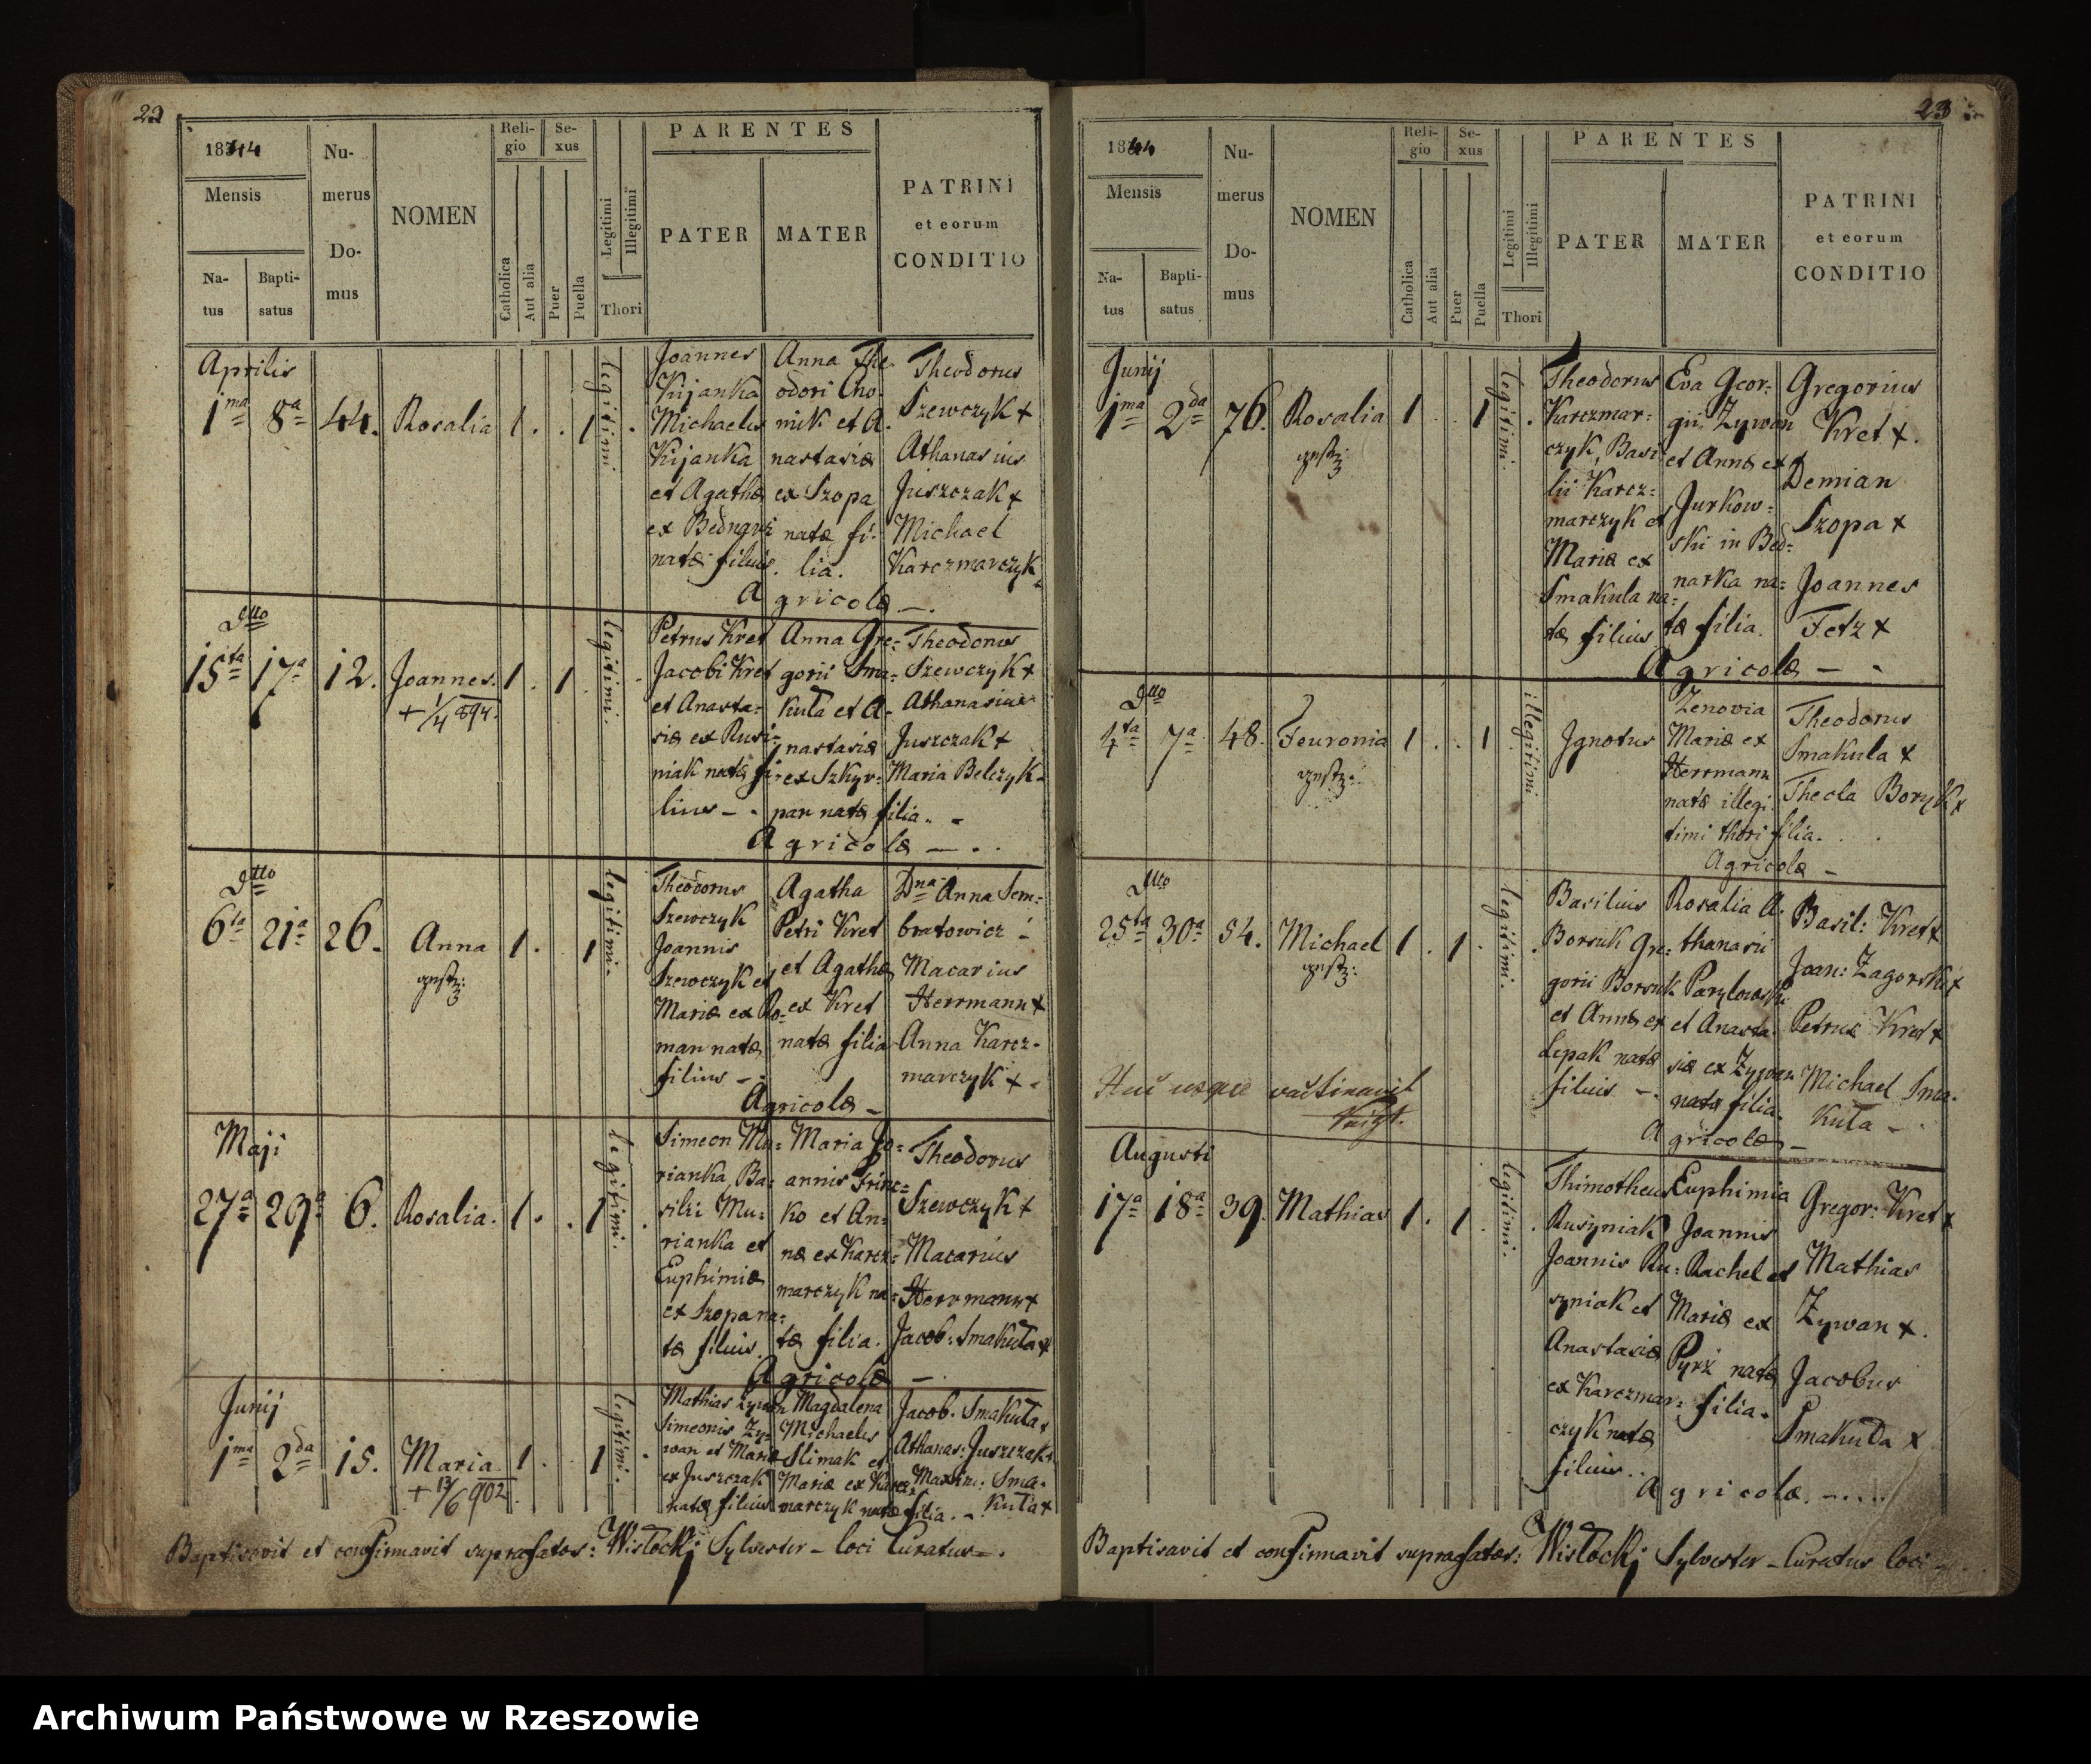 22
1844
Mensis
Na-
tus
Bapti-
satus
Nu-
merus
Do-
mus
NOMEN
Reli-
gio
Catholica
Aut alia
Se-
xus
Puer
Puella
Legitimi
Illegitimi
Thori
PARENTES
PATER
MATER
PATRINI
et eorum
CONDITIO
Aprilis
1ma
8a
44.
Rosalia
1 . . 1
legitimi.
Joannes
Kijanka
Michaelis
Kijanka
et Agathæ
ex Bednarz
natæ filius.
Anna The-
odori Cho-
mik et A-
nastasiæ
ex Szopa
natæ fi-
lia.
Theodorus
Szewczyk +
Athanasius
Juszczak +
Michael
Karczmarczyk
Agricolæ —.
Dtto
15ta
17a
12.
Joannes.
+ 1/4 894.
1 . 1
legitimi.
Petrus Kret
Jacobi Kret
et Anasta-
siæ ex Rusi-
niak natæ fi-
lius — .
Anna Gre-
gorii Sma-
kuła et A-
nastasiæ
ex Szkyr-
pan natæ filia.
Theodorus
Szewczyk +
Athanasius
Juszczak +
Maria Belczyk
Agricolæ — . .
Dtto
6ta
21a
26.
Anna
1 . 1
legitimi.
Theodorus
Szewczyk
Joannis
Szewczyk et
Mariæ ex Ro-
man natæ
filius — .
Agatha
Petri Kret
et Agathæ
ex Kret
natæ filia
Dna Anna Sem-
bratowicz
Macarius
Herrmann +
Anna Karcz-
marczyk +
Agricolæ —
Maji
27a
29a
6.
Rosalia.
1 . . 1
legitimi.
Simeon Mu-
rianka, Ba-
silii Mu-
rianka et
Euphimiæ
ex Szopa na-
tæ filius.
Maria Jo-
annis Frinc-
ko et An-
næ ex Karcz-
marczyk na-
tæ filia.
Theodorus
Szewczyk +
Macarius
Herrmann +
Jacob: Smakuła +
Agricolæ —
Junij
1ma
2da
15.
Maria.
+ 13/6 902.
1 . 1
legitimi.
Mathias Zywan
Simeonis Zy-
wan et Mariæ
ex Juszczak
natæ filius
Magdalena
Michaelis
Slimak et
Mariæ ex Karcz-
marczyk natæ filia.
Jacob. Smakuła +
Athanas: Juszczak +
Maxim: Sma-
kuła +
Baptisavit et confirmavit suprafatos: Wisłockj Sylvester — loci Curatus —.
23
1844
Mensis
Na-
tus
Bapti-
satus
Nu-
merus
Do-
mus
NOMEN
Reli-
gio
Catholica
Aut alia
Se-
xus
Puer
Puella
Legitimi
Illegitimi
Thori
PARENTES
PATER
MATER
PATRINI
et eorum
CONDITIO
Junij
1ma
2da
76.
Rosalia
1 . . 1
legitimi.
Theodorus
Karczmar-
czyk, Basi-
lii Karcz-
marczyk et
Mariæ ex
Smakula na-
tæ filius
Eva Geor-
gii Zywan
et Annæ ex
Jurkow-
ski in Bed-
narka na-
tæ filia.
Gregorius
Kret +.
Demian
Szopa +
Joannes
Fetz +
Agricolæ — .
Dtto
4ta
7a
48.
Feuronia
1 . . 1
illegitimi.
Ignotus
Zenovia
Mariæ ex
Herrmann
natæ illegi-
timi thori filia.
Theodorus
Smakula +
Thecla Boryk +
Agricolæ —
Dtto
25ta
30a
54.
Michael
1 . 1
legitimi.
Basilius
Borsuk Gre-
gorii Borsuk
et Annæ ex
Lepak natæ
filius — .
Rosalia A-
thanasii
Paryłowski
et Anasta-
siæ ex Zywan
natæ filia.
Basil: Kret +
Joan: Zagorski +
Petrus Kret +
Michael Sma-
kuła — .
Agricolæ —
Huc usque vaccinavit
Augusti
17a
18a
39.
Mathias
1 . 1
legitimi.
Thimotheus
Rusyniak
Joannis Ru-
syniak et
Anastasiæ
ex Karczmar-
czyk natæ
filius..
Euphimia
Joannis
Rachel et
Mariæ ex
Pyrz natæ
filia.
Gregor: Kret +
Mathias
Zywan +.
Jacobus
Smakuła +
Agricolæ. —....
Baptisavit et confirmavit suprafatos: Wisłockj Sylvester — Curatus loci —
Archiwum Państwowe w Rzeszowie